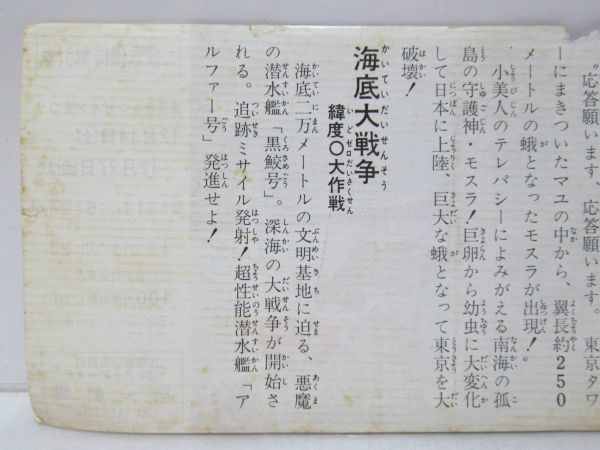 "応答願います、応答願います。東京タワ
ーにまきついたマユの中から、翼長約250
メートルの蛾となったモスラが出現!"
小美人のテレパシーによみがえる南海の孤
島の守護神・モスラ!巨卵から幼虫に大変化
して日本に上陸、巨大な蛾となって東京を大
破壊!
海底大戦争
緯度〇大作戦
海底二万メートルの文明基地に迫る、悪魔
の潜水艦「黒鮫号」。深海の大戦争が開始さ
れる。追跡ミサイル発射!超性能潜水艦「ア
ルファー号」発進せよ!